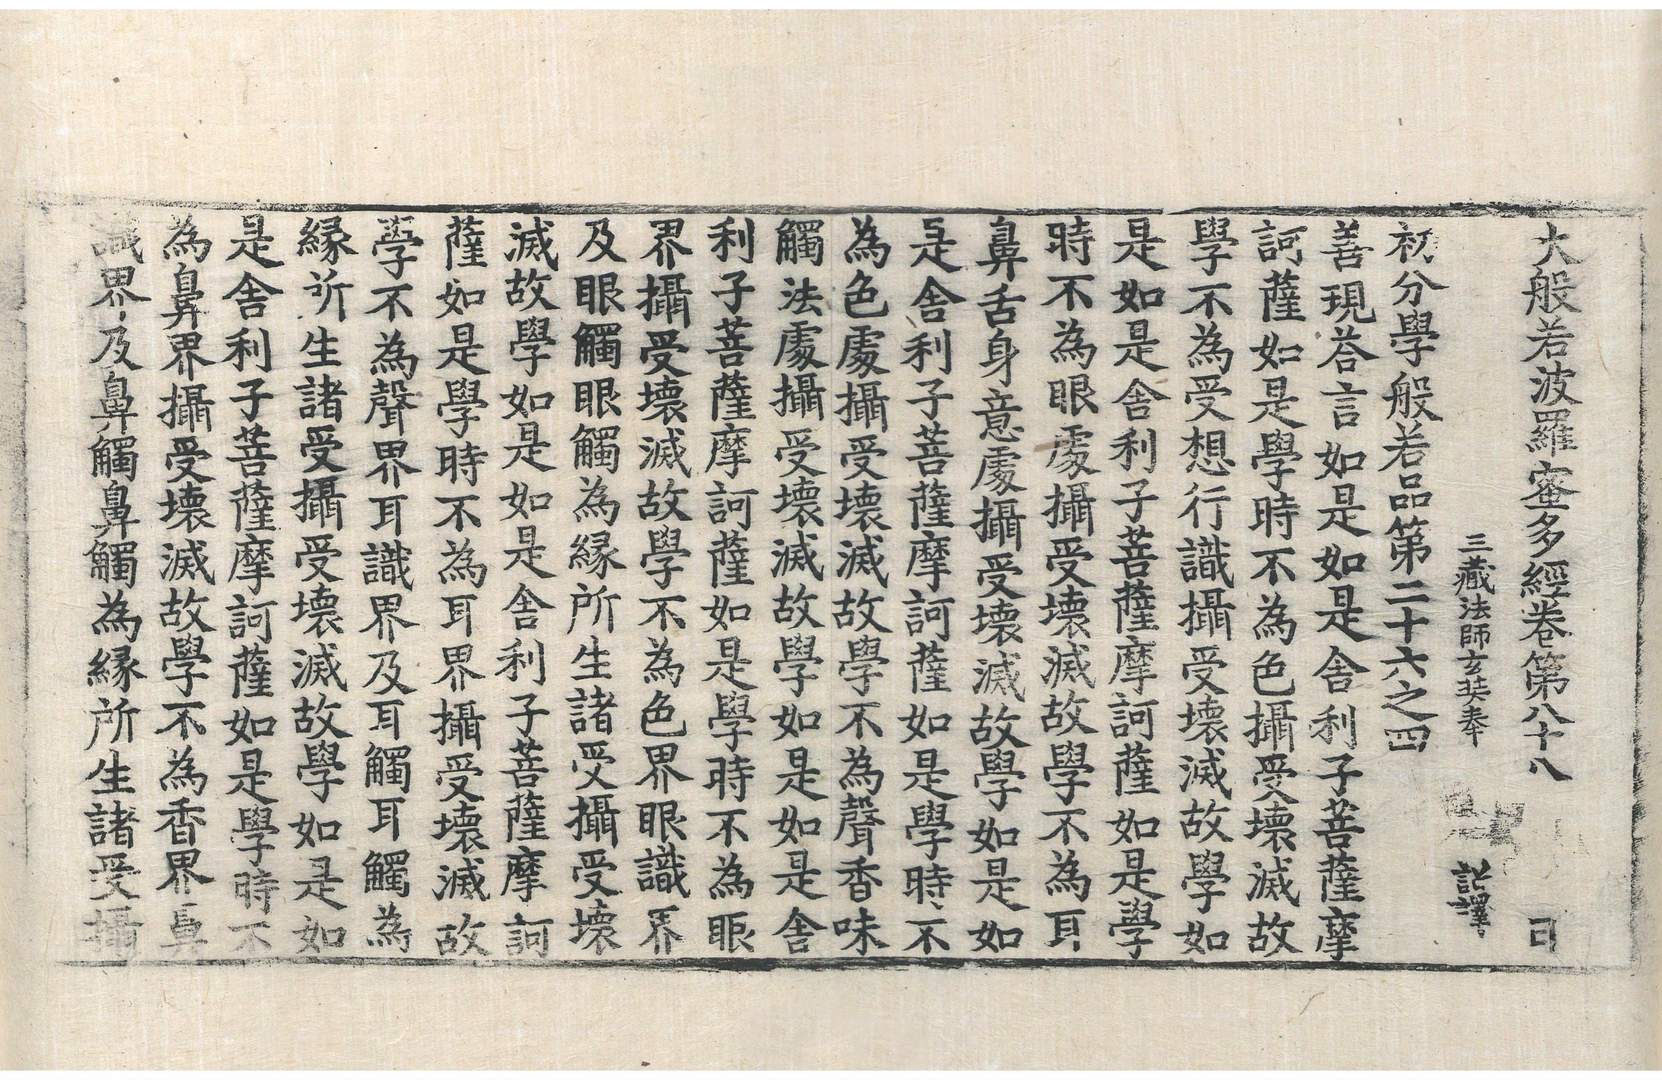 大般若波羅蜜多經卷第八十八
三藏法師玄奘奉 詔譯
初分學般若品第二十六之四
善現荅言如是如是舎利子菩薩摩
訶薩如是學時不為色攝受壞滅故
學不為受想行識攝受壞滅故學如
是如是舎利子菩薩摩訶薩如是學
時不為眼處攝受壞滅故學不為耳
鼻舌身意處攝受壞滅故學如是如
是舎利子菩薩摩訶薩如是學時不
為色處攝受壞滅故學不為聲香味
觸法處攝受壞滅故學如是如是舎
利子菩薩摩訶薩如是學時不為眼
界攝受壞滅故學不為色界眼識界
及眼觸眼觸為緣所生諸受攝受壞
滅故學如是如是舎利子菩薩摩訶
薩如是學時不為耳界攝受壞滅故
學不為聲界耳識界及耳觸耳觸為
緣所生諸受攝受壞滅故學如是如
是舎利子菩薩摩訶薩如是學時不
為鼻界攝受壞滅故學不為香界鼻
識界及鼻觸鼻觸為緣所生諸受攝